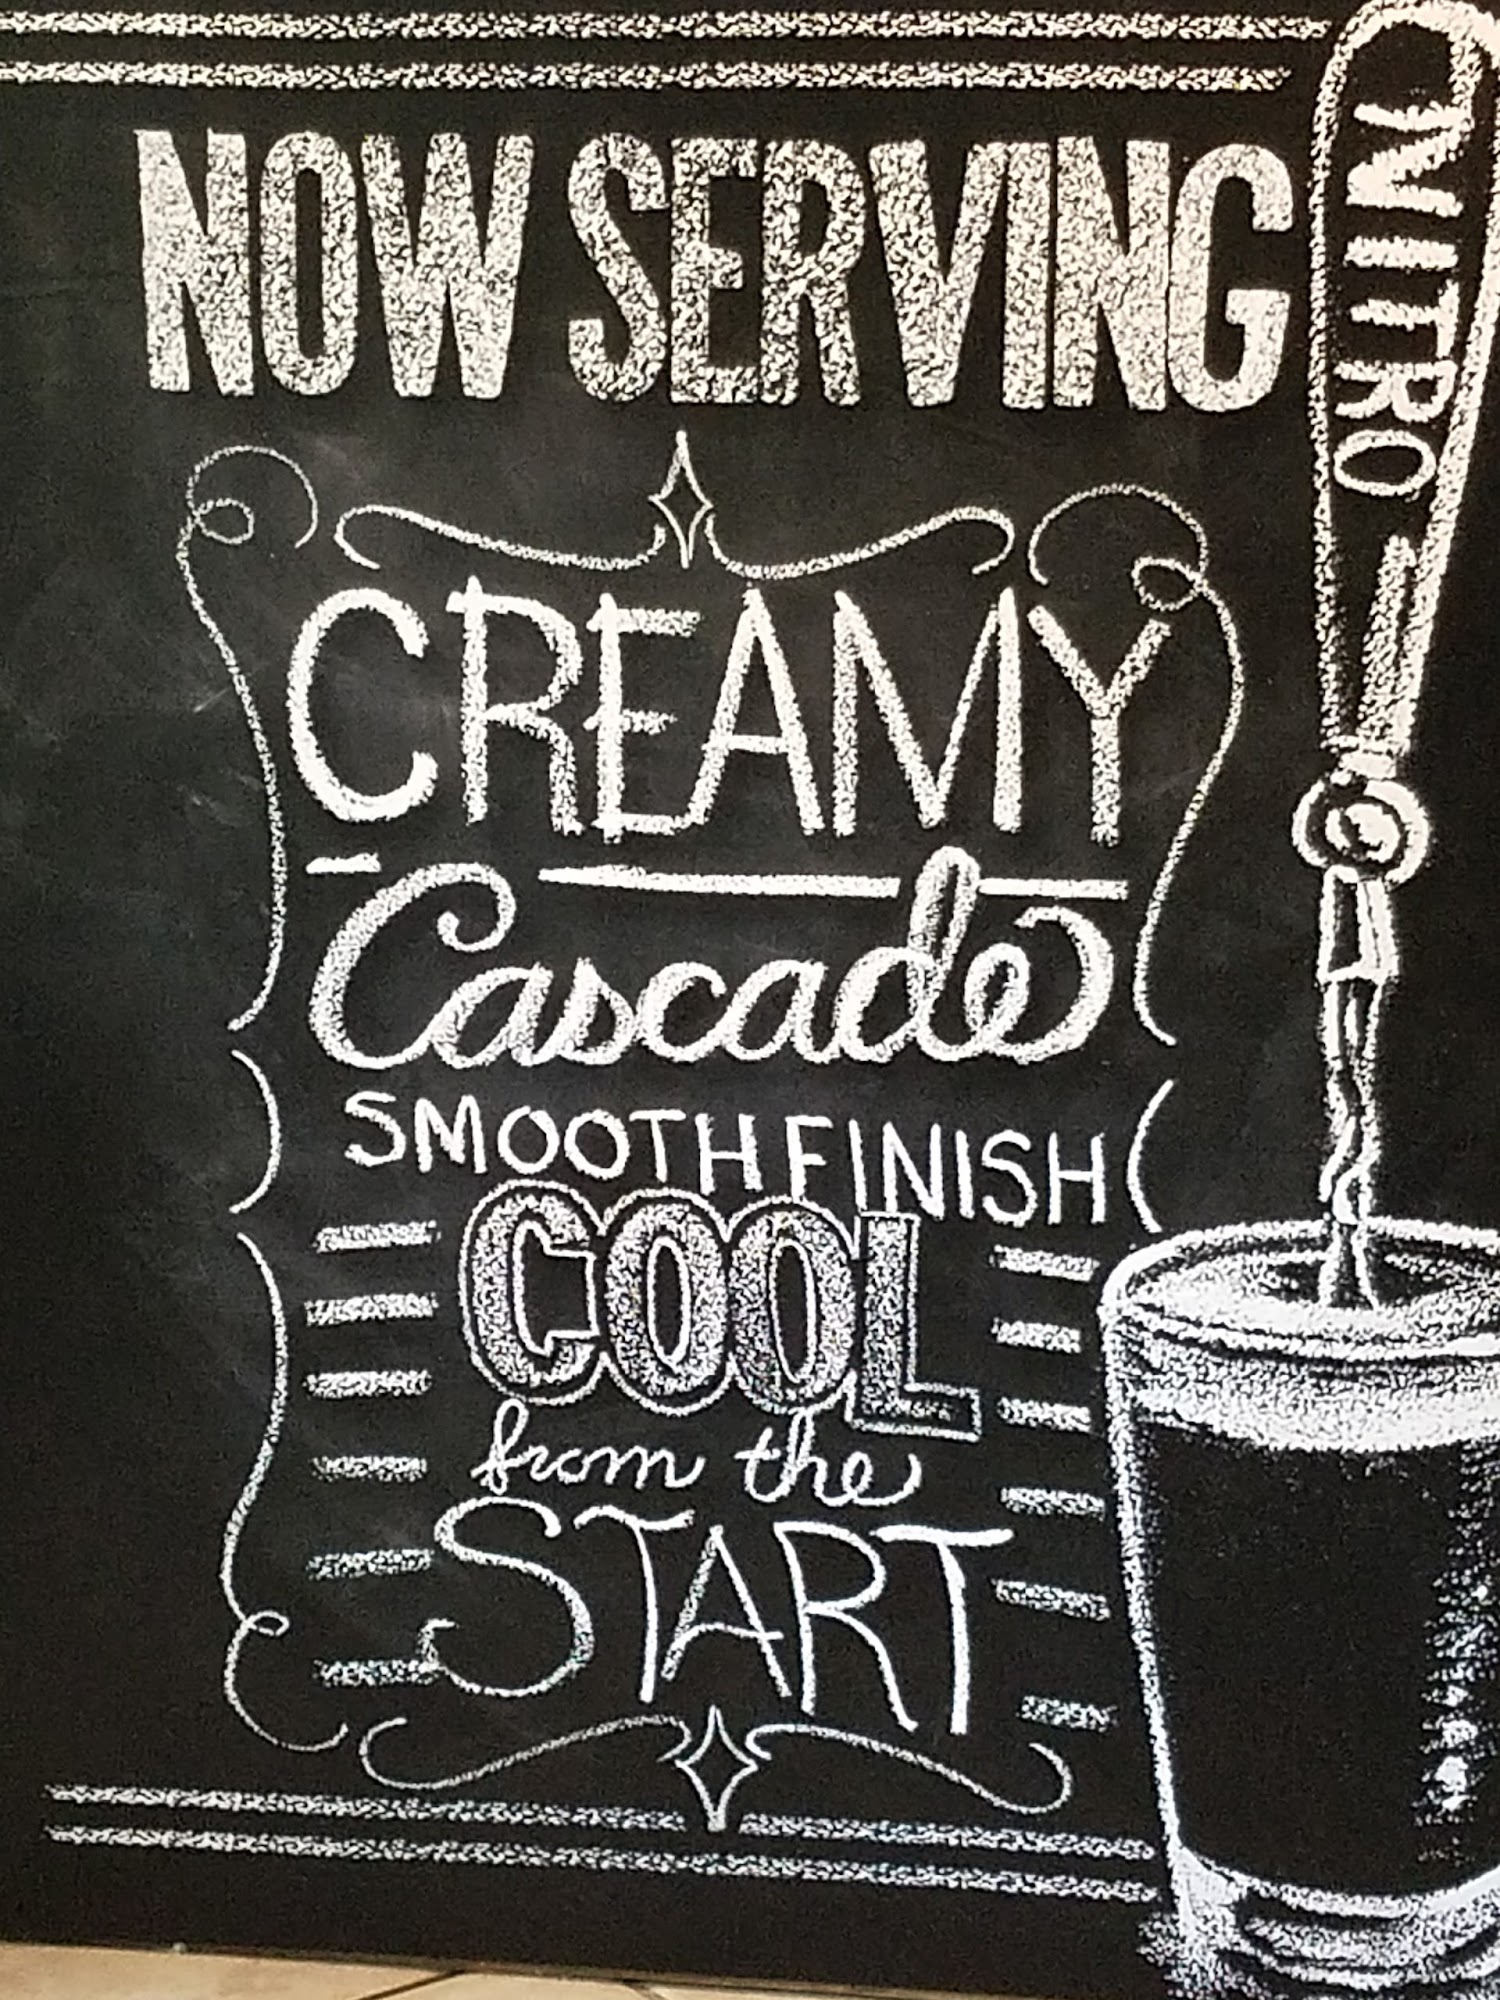 NOW SERVING
NITRO
CREAMY
Cascade
SMOOTH FINISH
COOL
from the
START